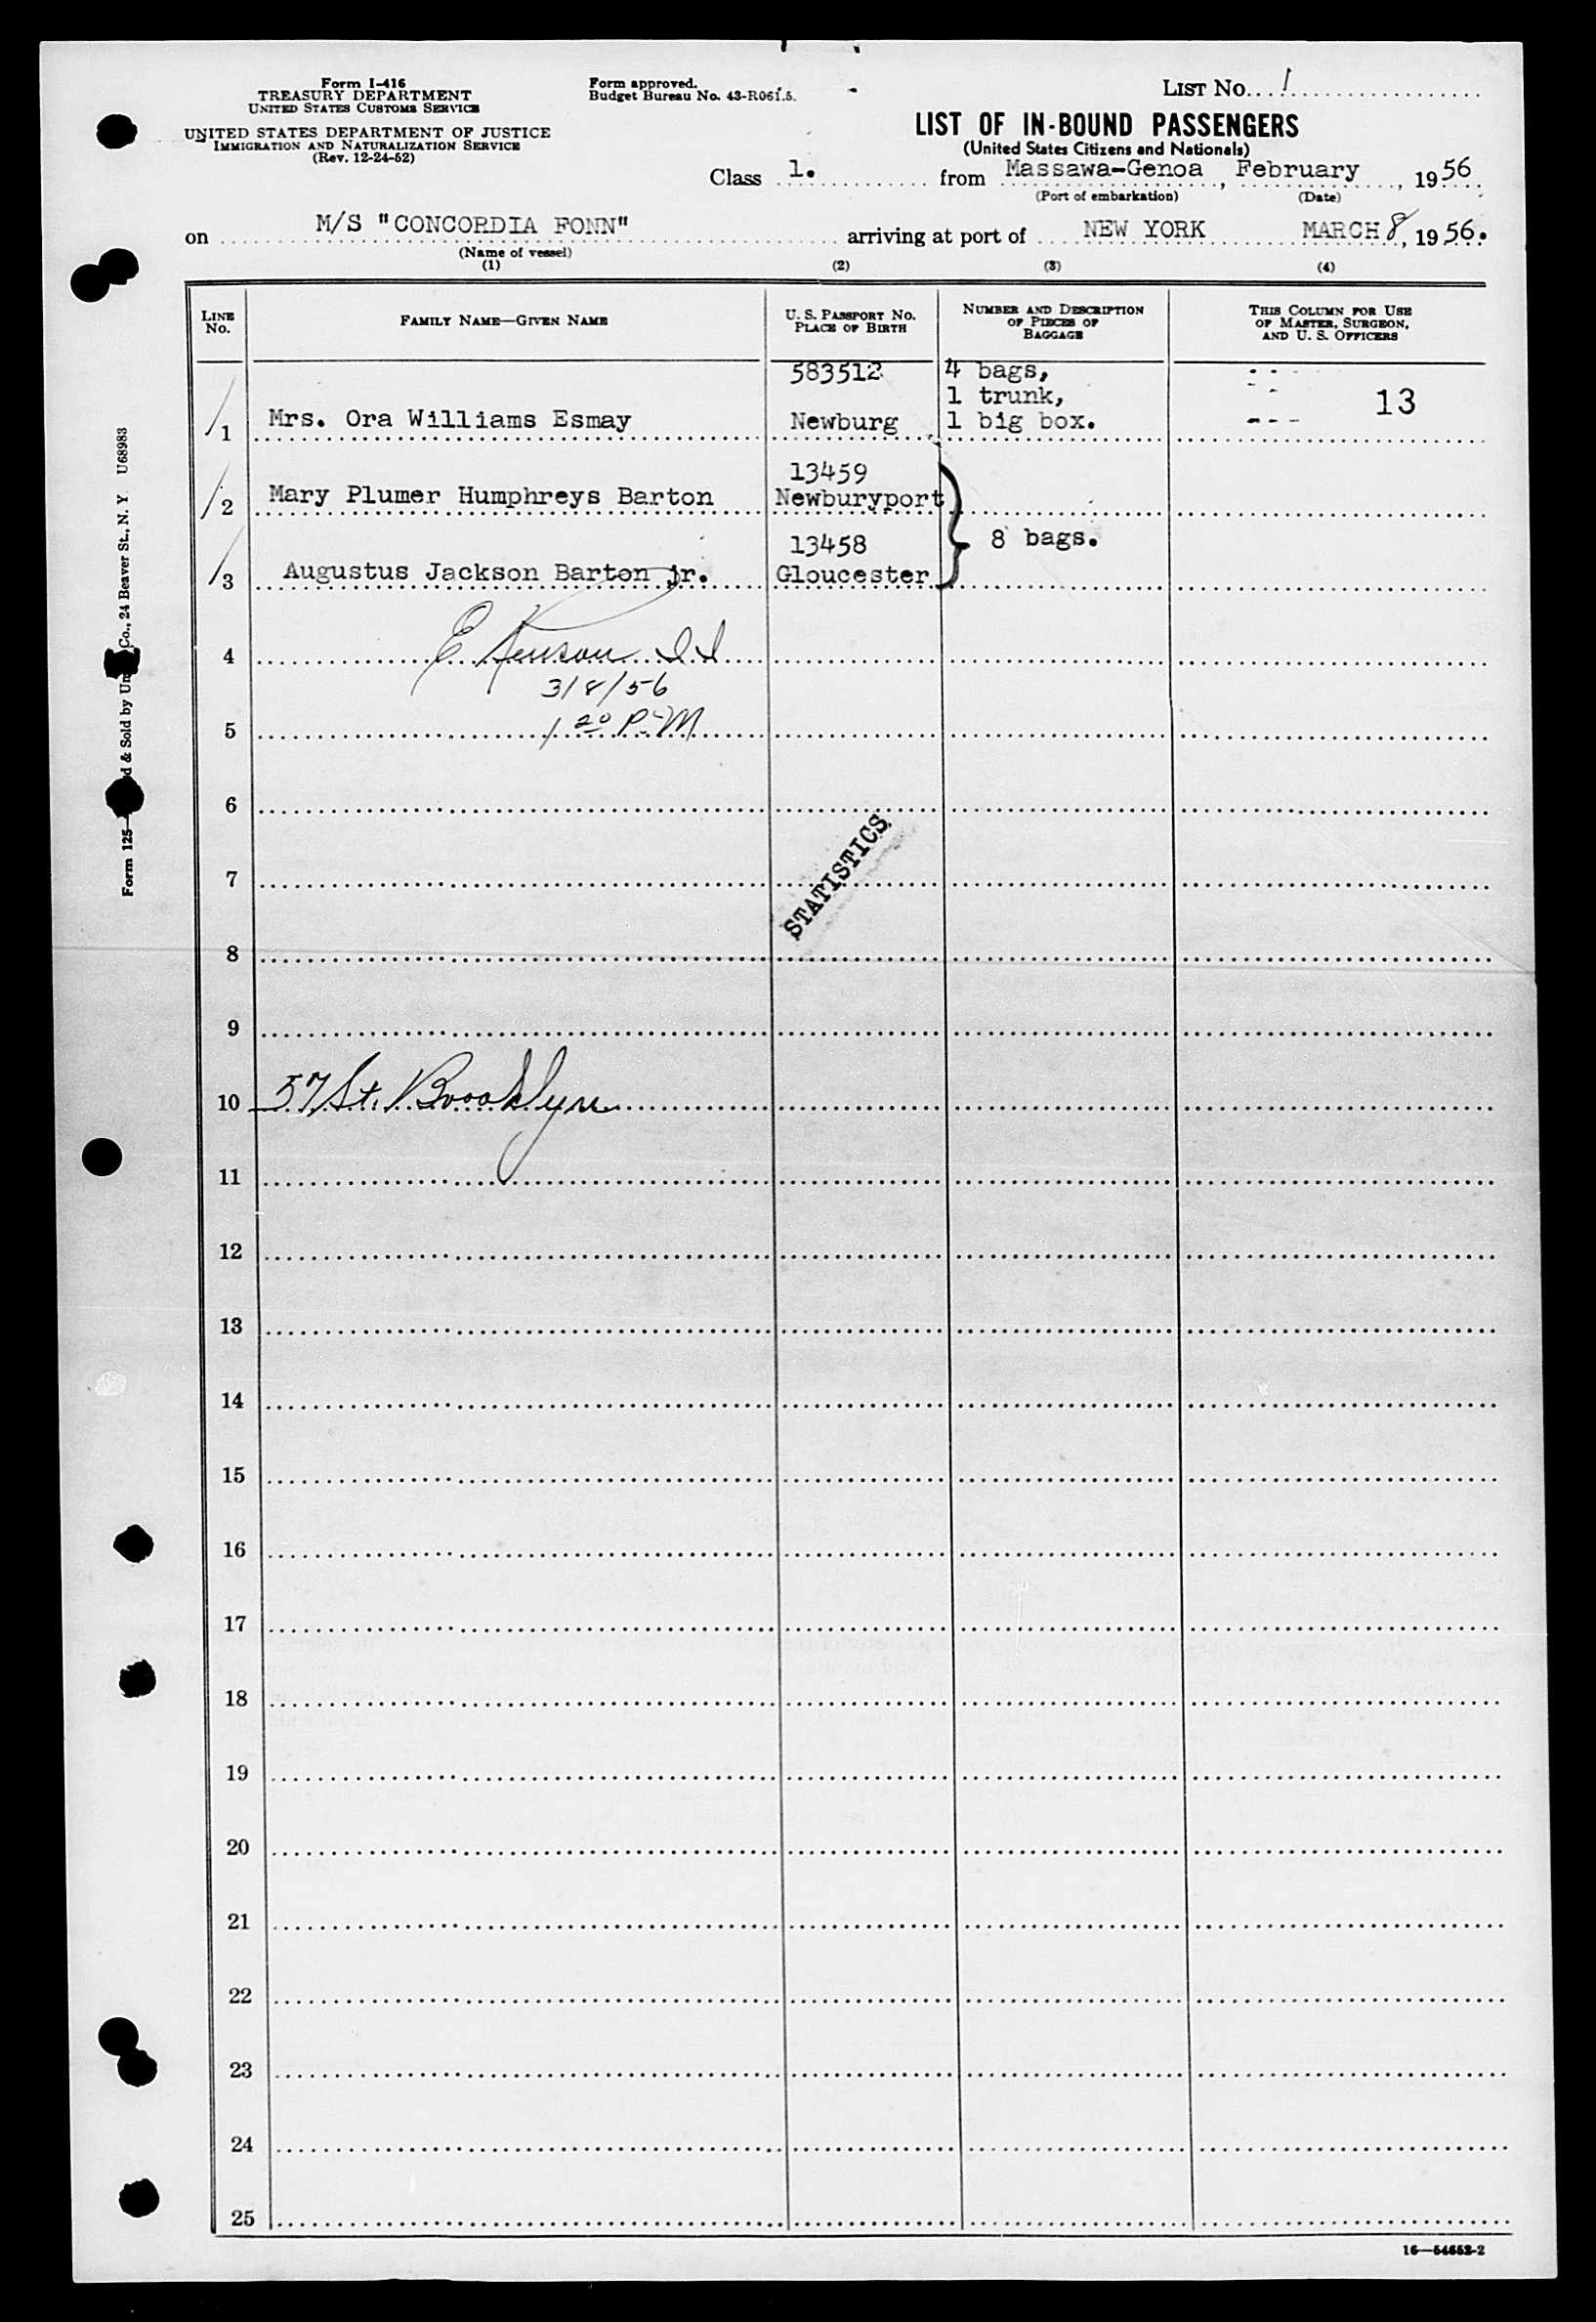 Form I-416
TREASURY DEPARTMENT
UNITED STATES CUSTOMS SERVICE
UNITED STATES DEPARTMENT OF JUSTICE
IMMIGRATION AND NATURALIZATION SERVICE
(Rev. 12-24-52)
Form approved.
Budget Bureau No. 43-R061.5.
LIST No. 1
LIST OF IN-BOUND PASSENGERS
(United States Citizens and Nationals)
Class 1. from Massawa-Genoa, February, 1956
(Port of embarkation) (Date)
on M/S "CONCORDIA FONN" arriving at port of NEW YORK MARCH 8, 1956.
(Name of vessel)
(1) (2) (3) (4)
LINE No.
FAMILY NAME—GIVEN NAME
U. S. PASSPORT No.
PLACE OF BIRTH
NUMBER AND DESCRIPTION
OF PIECES OF
BAGGAGE
THIS COLUMN FOR USE
OF MASTER, SURGEON,
AND U. S. OFFICERS
583512 4 bags,
1 trunk, 13
1 Mrs. Ora Williams Esmay Newburg 1 big box.
13459
2 Mary Plumer Humphreys Barton Newburyport
13458 8 bags.
3 Augustus Jackson Barton jr. Gloucester
4 E
3/8/56
5 1 20 P.M
6
STATISTICS
7
8
9
10 57 St. Brooklyn
11
12
13
14
15
16
17
18
19
20
21
22
23
24
25
16—54652-2
Form 125— d & Sold by Un Co., 24 Beaver St., N. Y U68983